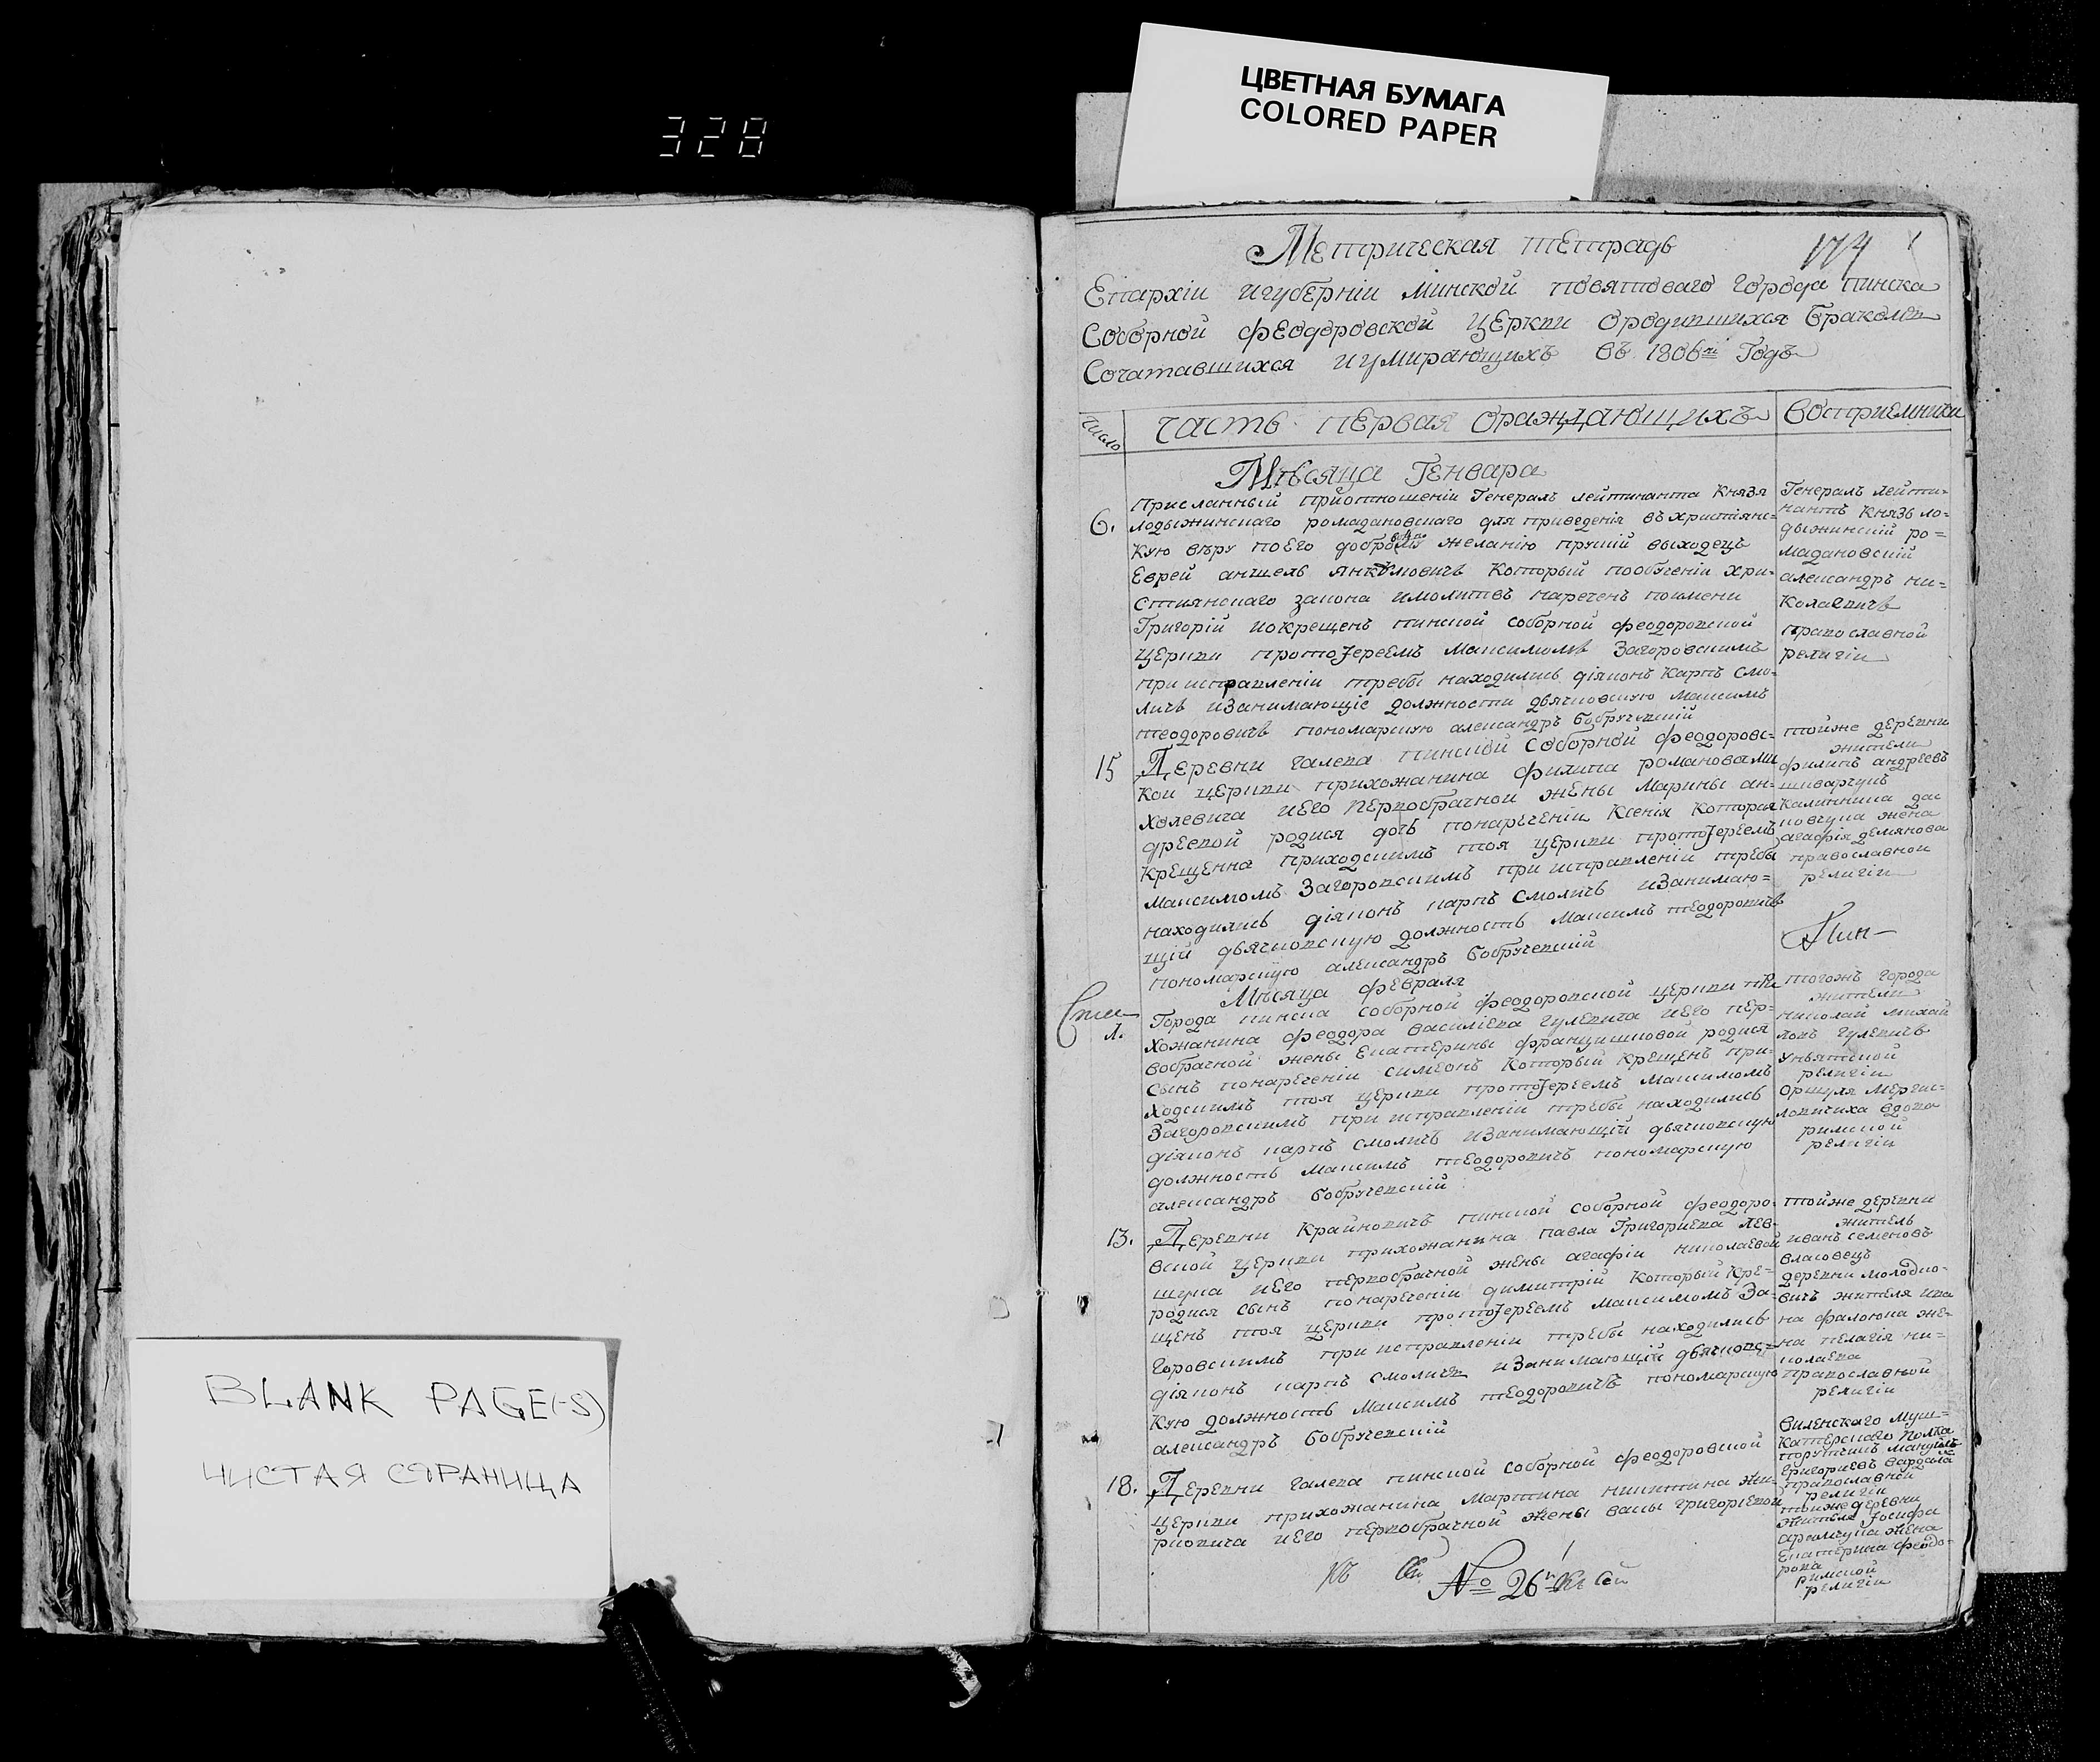 ЦВЕТНАЯ БУМАГА
COLORED PAPER
328
BLANK PAGE(-S)
ЧИСТАЯ СТРАНИЦА
174
Метрическая тетрадь
Епархіи игуберніи минской повятоваго города пинска
Соборной феодоровской церкви ородившихся бракомъ
Сочатавшихся иумирающихъ въ 1806м Годъ
Число
Часть первая ораждающихъ
Восприемники
Мѣсяца Генвара
6.
присланный приотношеніи Генералъ лейтинанта Князя
лодыжинскаго ромадановскаго для приведенія въ христіянс=
кую вѣру поЕго доброму желанію прускій выходецъ
Еврей аншель янкѣловичъ Который пообученіи хри=
стиянскаго закона имолитвъ нареченъ поимени
Григорій иокрещенъ пинской соборной феодоровской
церкви протоІереемъ Максимомъ Загоровскимъ
при исправленіи требы находились діяконъ Карпъ Смо=
личъ иЗанимающіе должности дьячковскую максимъ
теодоровичъ пономарскую александръ бобручевскій
Генералъ лейти=
нантъ Князь ло=
дыжинскій ро=
мадановскій
александръ ни=
колаевичъ
православной
религіи
15
Деревни галева пинской соборной феодоровс=
кои церкви прихожанина филипа романова
холевича иЕго первобрачной жены Марины ан=
дреевой родися дочь понареченіи Ксенія Которая
Крещенна приходскимъ тоя церкви протоІереемъ
максимомъ Загоровскимъ при исправленіи требы
находились діяконъ карпъ Смоличъ иЗанимаю=
щій дьячковскую должность Максимъ теодоровичъ
пономарскую александръ бобручевскій
тойже деревни
жители
филипъ андреевъ
шварчукъ
Калинника
жена
агафія демянова
православнои
религіи
Пин-
Мѣсяца февраля
1.
Города пинска соборной феодоровской церкви при
хожанина феодора василіева гулевича иЕго пер=
вобрачной жены Екатерины францишковой родися
сынъ понареченіи симеонъ Который крещенъ при=
ходскимъ тоя церкви протоІереемъ максимомъ
Загоровскимъ при исправленіи требы находились
діяконъ карпъ смоличъ иЗанимающій дьячковскую
должность максимъ теодоровичъ пономарскую
александръ бобручевскій
тогожъ города
жители
николай михай
ловъ гулевичъ
Униятской
религіи
Оршуля
вдова
римской
религіи
13.
Деревни Крайновичъ пинской соборной феодоро=
вской церкви прихожанина павла Григориева лев=
шука иЕго первобрачной жены агафіи николаевой
родися сынъ понареченіи димитрій Который кре=
щенъ тоя церкви протоІереемъ максимомъ За=
горовскимъ при исправленіи требы находились
діяконъ карпъ смоличъ иЗанимающій дьячковс=
кую должность максимъ теодоровичъ пономарскую
александръ бобручевскій
тойже деревни
житель
иванъ семеновъ
власовецъ
деревни молодко=
вичъ жителя ива
на фалюка же=
на пелагія ни=
колаева
православной
религіи
18.
Деревни галева пинской соборной феодоровской
церкви прихожанина мартина никитина
иЕго первобрачной жены васы григоріевой
виленскаго муш=
катерскаго полка
порутчикъ
григориевъ
православной
религіи
тойже деревни
жителя Іосифа
жена
Екатерина феодо=
рова
римской
религіи
№ 26